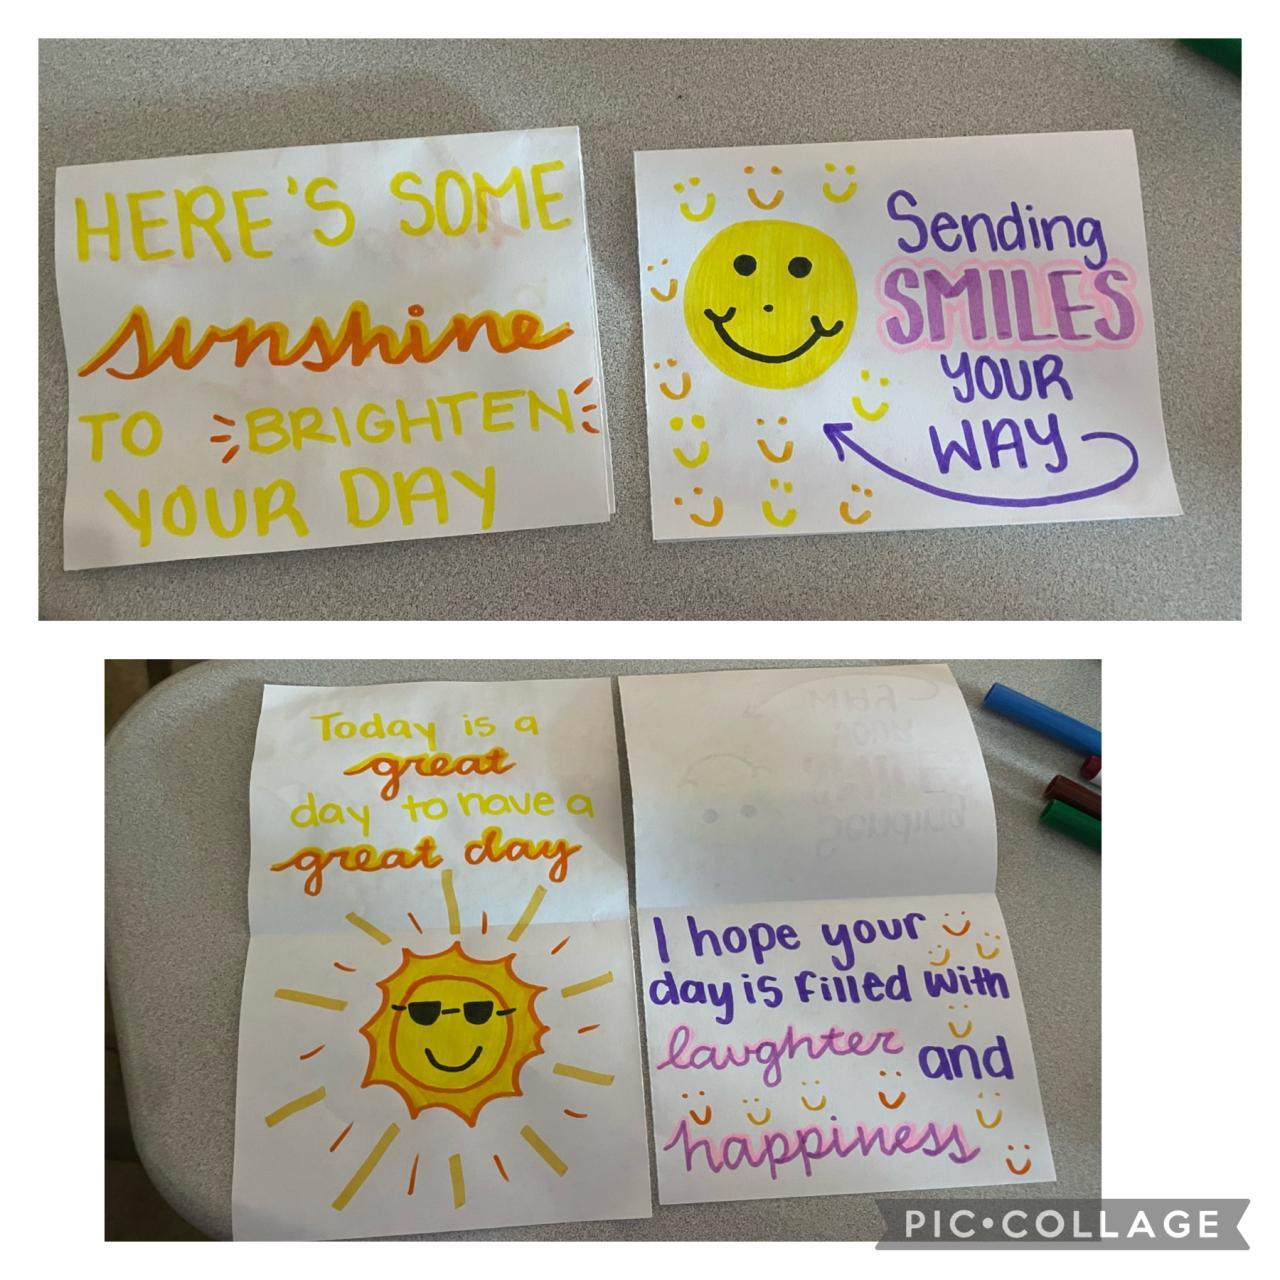 HERE'S SOME
sunshine
TO BRIGHTEN
YOUR DAY
Sending
SMILES
YOUR
WAY
Today is a
great
day to have a
great day
I hope your
day is filled with
laughter and
happiness
PIC•COLLAGE